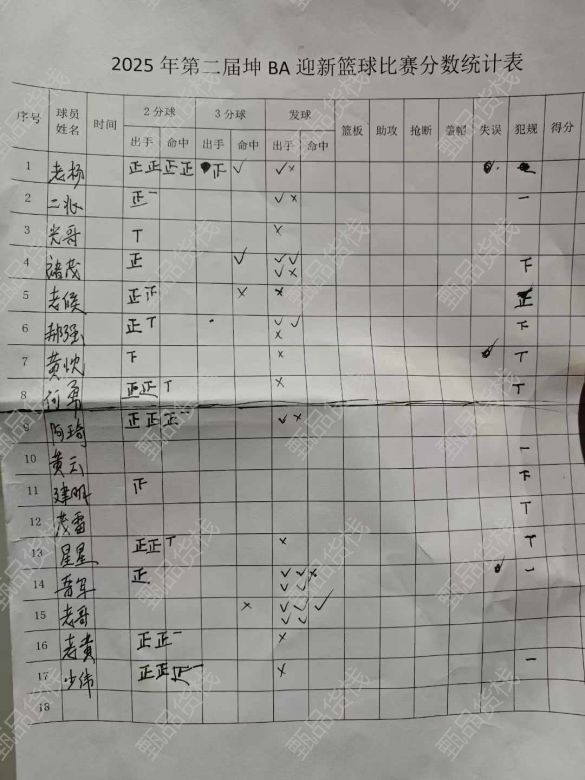 2025 年第二届坤 BA 迎新篮球比赛分数统计表
序号 球员姓名 时间 2 分球 3 分球 发球 篮板 助攻 抢断 盖帽 失误 犯规 得分
出手 命中 出手 命中 出手 命中
1 老杨 正正正正 正 ✓ ✓×
2 二兆 正一 ✓× 一
3 光哥 T ×
4 褚茂 正 ✓ ✓✓✓× 下
5 老侯 正 × × 正
6 郝强 正T ✓✓× 下
7 黄忱 下 × T
8 何勇 正正T × T
9 阿琦 正正正 ✓×
10 黄云 一
11 建明 下
12 茂雷 T
13 星星 正正T × T
14 晋军 正 ✓✓×✓✓ 一
15 老哥 × ✓✓✓✓✓
16 老贵 正正一 ×
17 少伟 正正正一 × 一
18